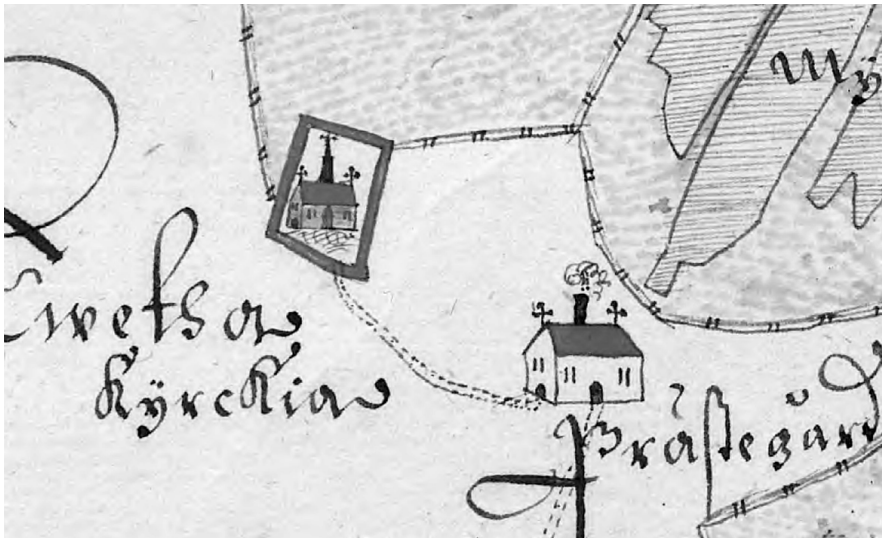 Mÿ
Twetha
Kÿrckia
Prästegård